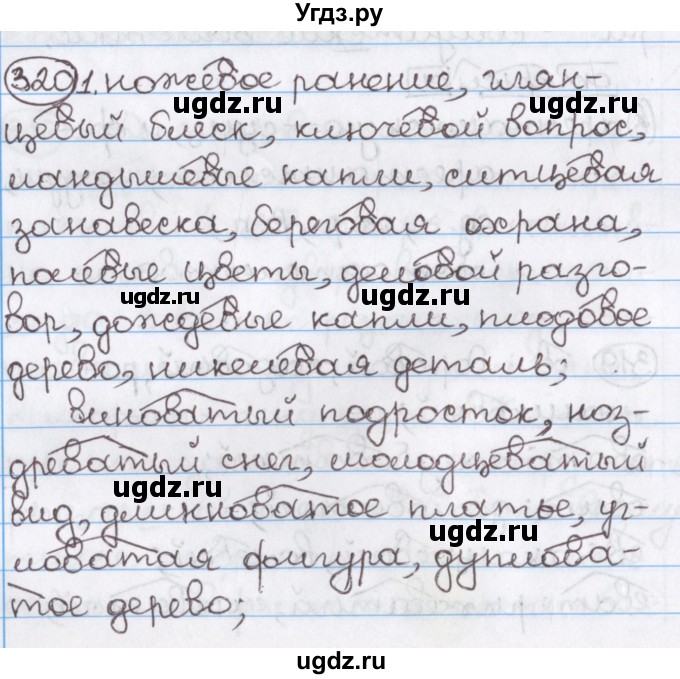 Угдз.ру
320 1. ножевое ранение, глян-
цевый блеск, ключевой вопрос,
ландышевые капли, ситцевая
занавеска, береговая охрана,
полевые цветы, деловой разго-
вор, дождевые капли, плодовое
дерево, никелевая деталь;
виноватый подросток, ноз-
древатый снег, молодцеватый
вид, длинноватое платье, уг-
ловатая фигура, дуплова-
тое дерево;
ugdz.ru
ugdz.ru
ugdz.ru
ugdz.ru
ugdz.ru
ugdz.ru
ugdz.ru
ugdz.ru